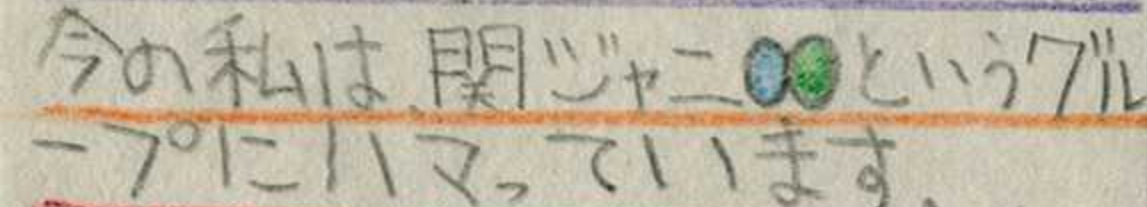 今の私は、関ジャニ∞というグル
ープにハマっています。